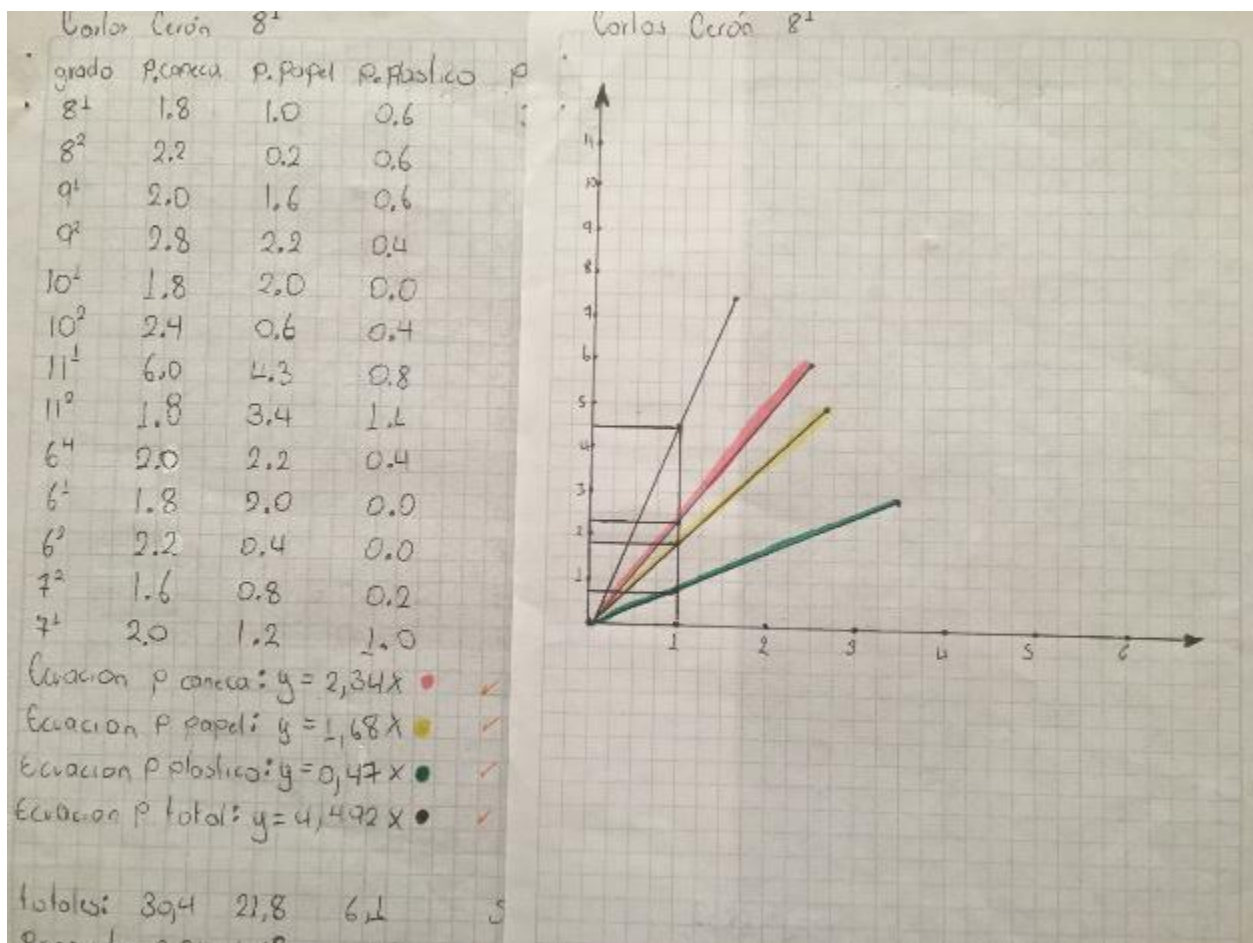 Carlos Cerón 8¹
grado P.caneca P. Papel P. Plastico P
8¹ 1.8 1.0 0.6
8² 2.2 0.2 0.6
9¹ 2.0 1.6 0.6
9² 2.8 2.2 0.4
10¹ 1.8 2.0 0.0
10² 2.4 0.6 0.4
11¹ 6.0 4.3 0.8
11² 1.8 3.4 1.1
6⁴ 2.0 2.2 0.4
6¹ 1.8 2.0 0.0
6² 2.2 0.4 0.0
7² 1.6 0.8 0.2
7¹ 2.0 1.2 1.0
Ecuacion P caneca: y = 2,34x
Ecuacion P papel: y = 1,68x
Ecuacion P plastico: y = 0,47x
Ecuacion P total: y = 4,492x
totales: 30,4 21,8 6,1 5
Carlos Cerón 8¹
11
10
9
8
7
6
5
4
3
2
1
1 2 3 4 5 6